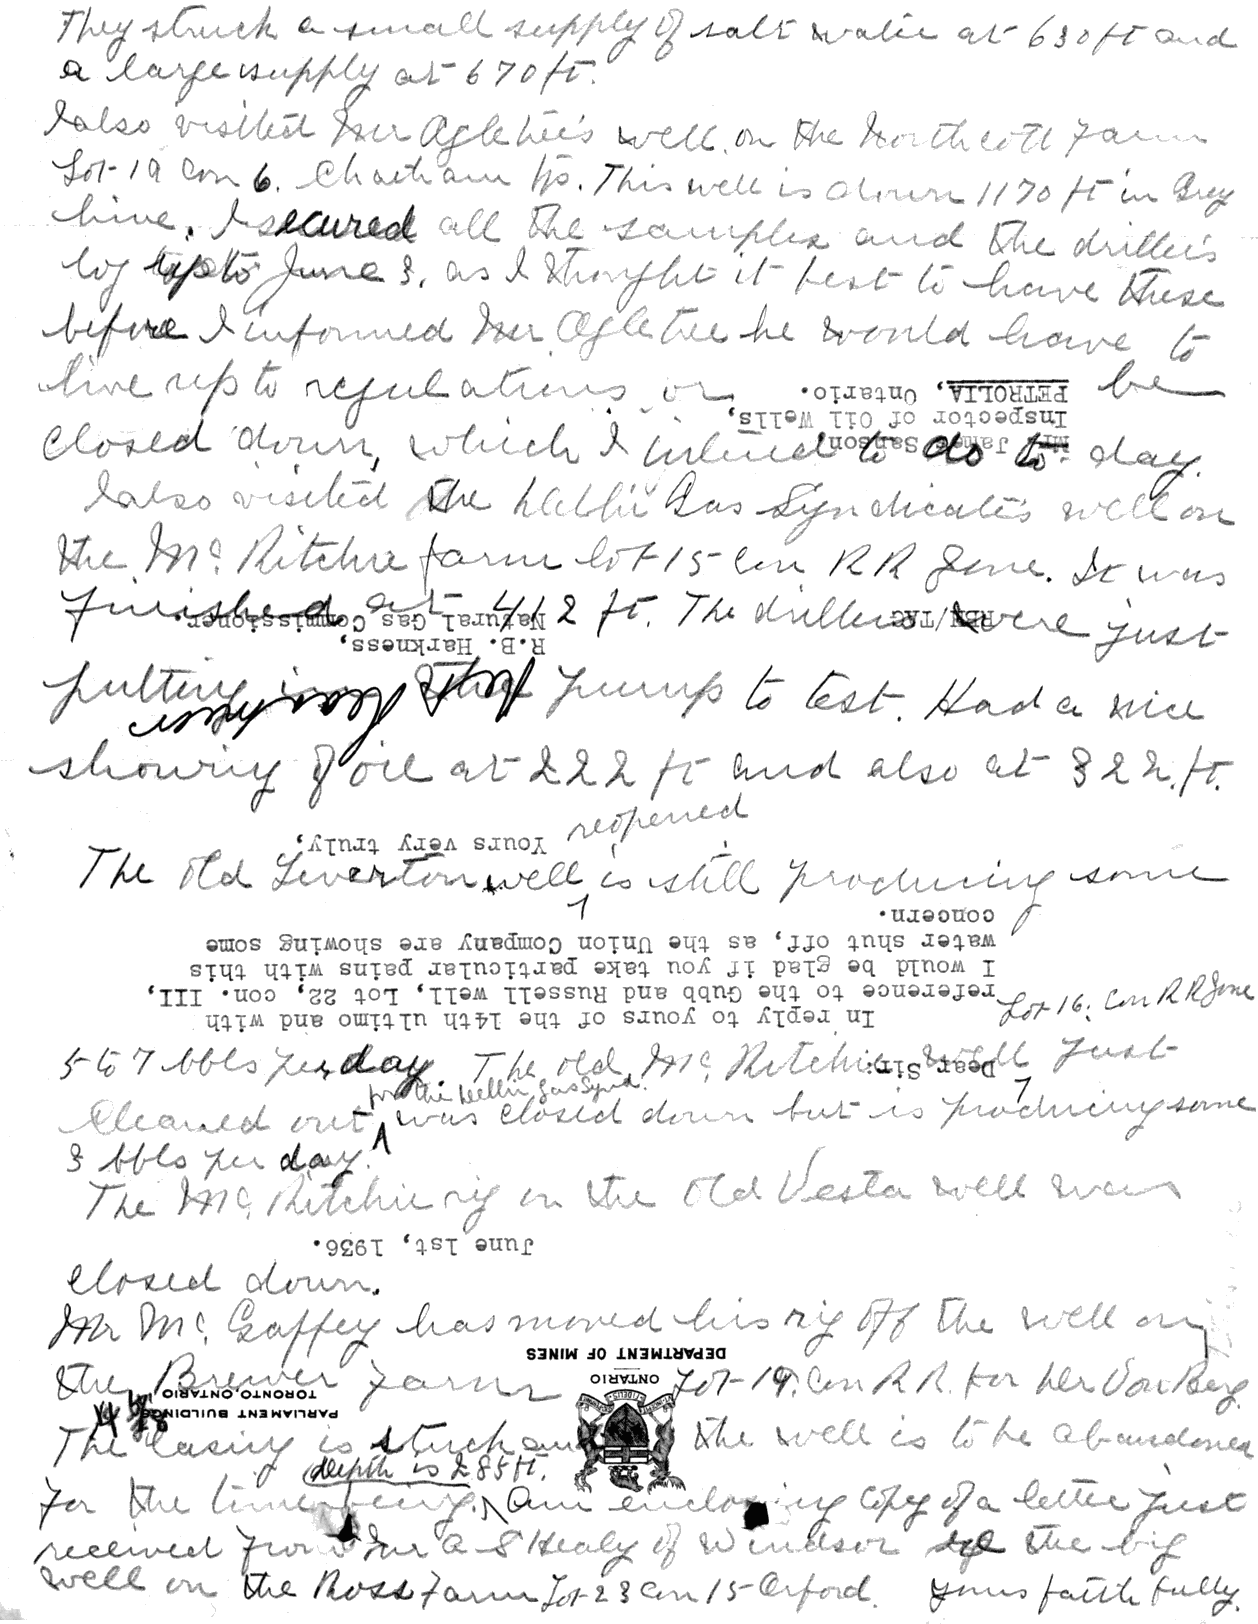 They struck a small supply of salt water at 630 ft and
a large supply at 670 ft.
I also visited Mr Ogletree's well on the Northcott Farm
Lot 19 Con 6. Chatham Tp. This well is down 1170 ft in Grey
lime. I secured all the samples and the driller's
log up to June 3, as I thought it best to have these
before I informed Mr Ogletree he would have to
live up to regulations or be
closed down, which I intend to do to-day.
I also visited the Gas Syndicate's well on
the Mc Ritchie farm lot 15 Con R R Zone. It was
finished at 412 ft. The drillers were just
putting in pump to test. Had a nice
showing of oil at 222 ft and also at 322 ft.
reopened
The old Leverton well is still producing some
Lot 16. Con R R Zone
5 to 7 bbls per day. The old Mc Ritchie well just
for the Gas Synd.
cleaned out was closed down but is producing some
3 bbls per day.
The Mc Ritchie rig on the old Vesta well was
closed down.
Mr Mc Gaffey has moved his rig off the well on
the Brewer Farm Lot 19. Con R R. for Von Berg
The casing is stuck and the well is to be abandoned
depth is 285 ft.
for the time being. Am enclosing copy of a letter just
received from Mr A S Healy of Windsor re the big
well on the Ross Farm Lot 23 Con 15 Orford. Yours faithfully.
ONTARIO
DEPARTMENT OF MINES
PARLIAMENT BUILDINGS
TORONTO ONTARIO
June 1st, 1936.
Dear Sir:
In reply to yours of the 14th ultimo and with
reference to the Gubb and Russell well, Lot 22, con. III,
I would be glad if you take particular pains with this
water shut off, as the Union Company are showing some
concern.
Yours very truly,
R.B. Harkness,
Natural Gas Commissioner.
RBH/TAG
Mr James Sanson,
Inspector of Oil Wells,
PETROLIA, Ontario.